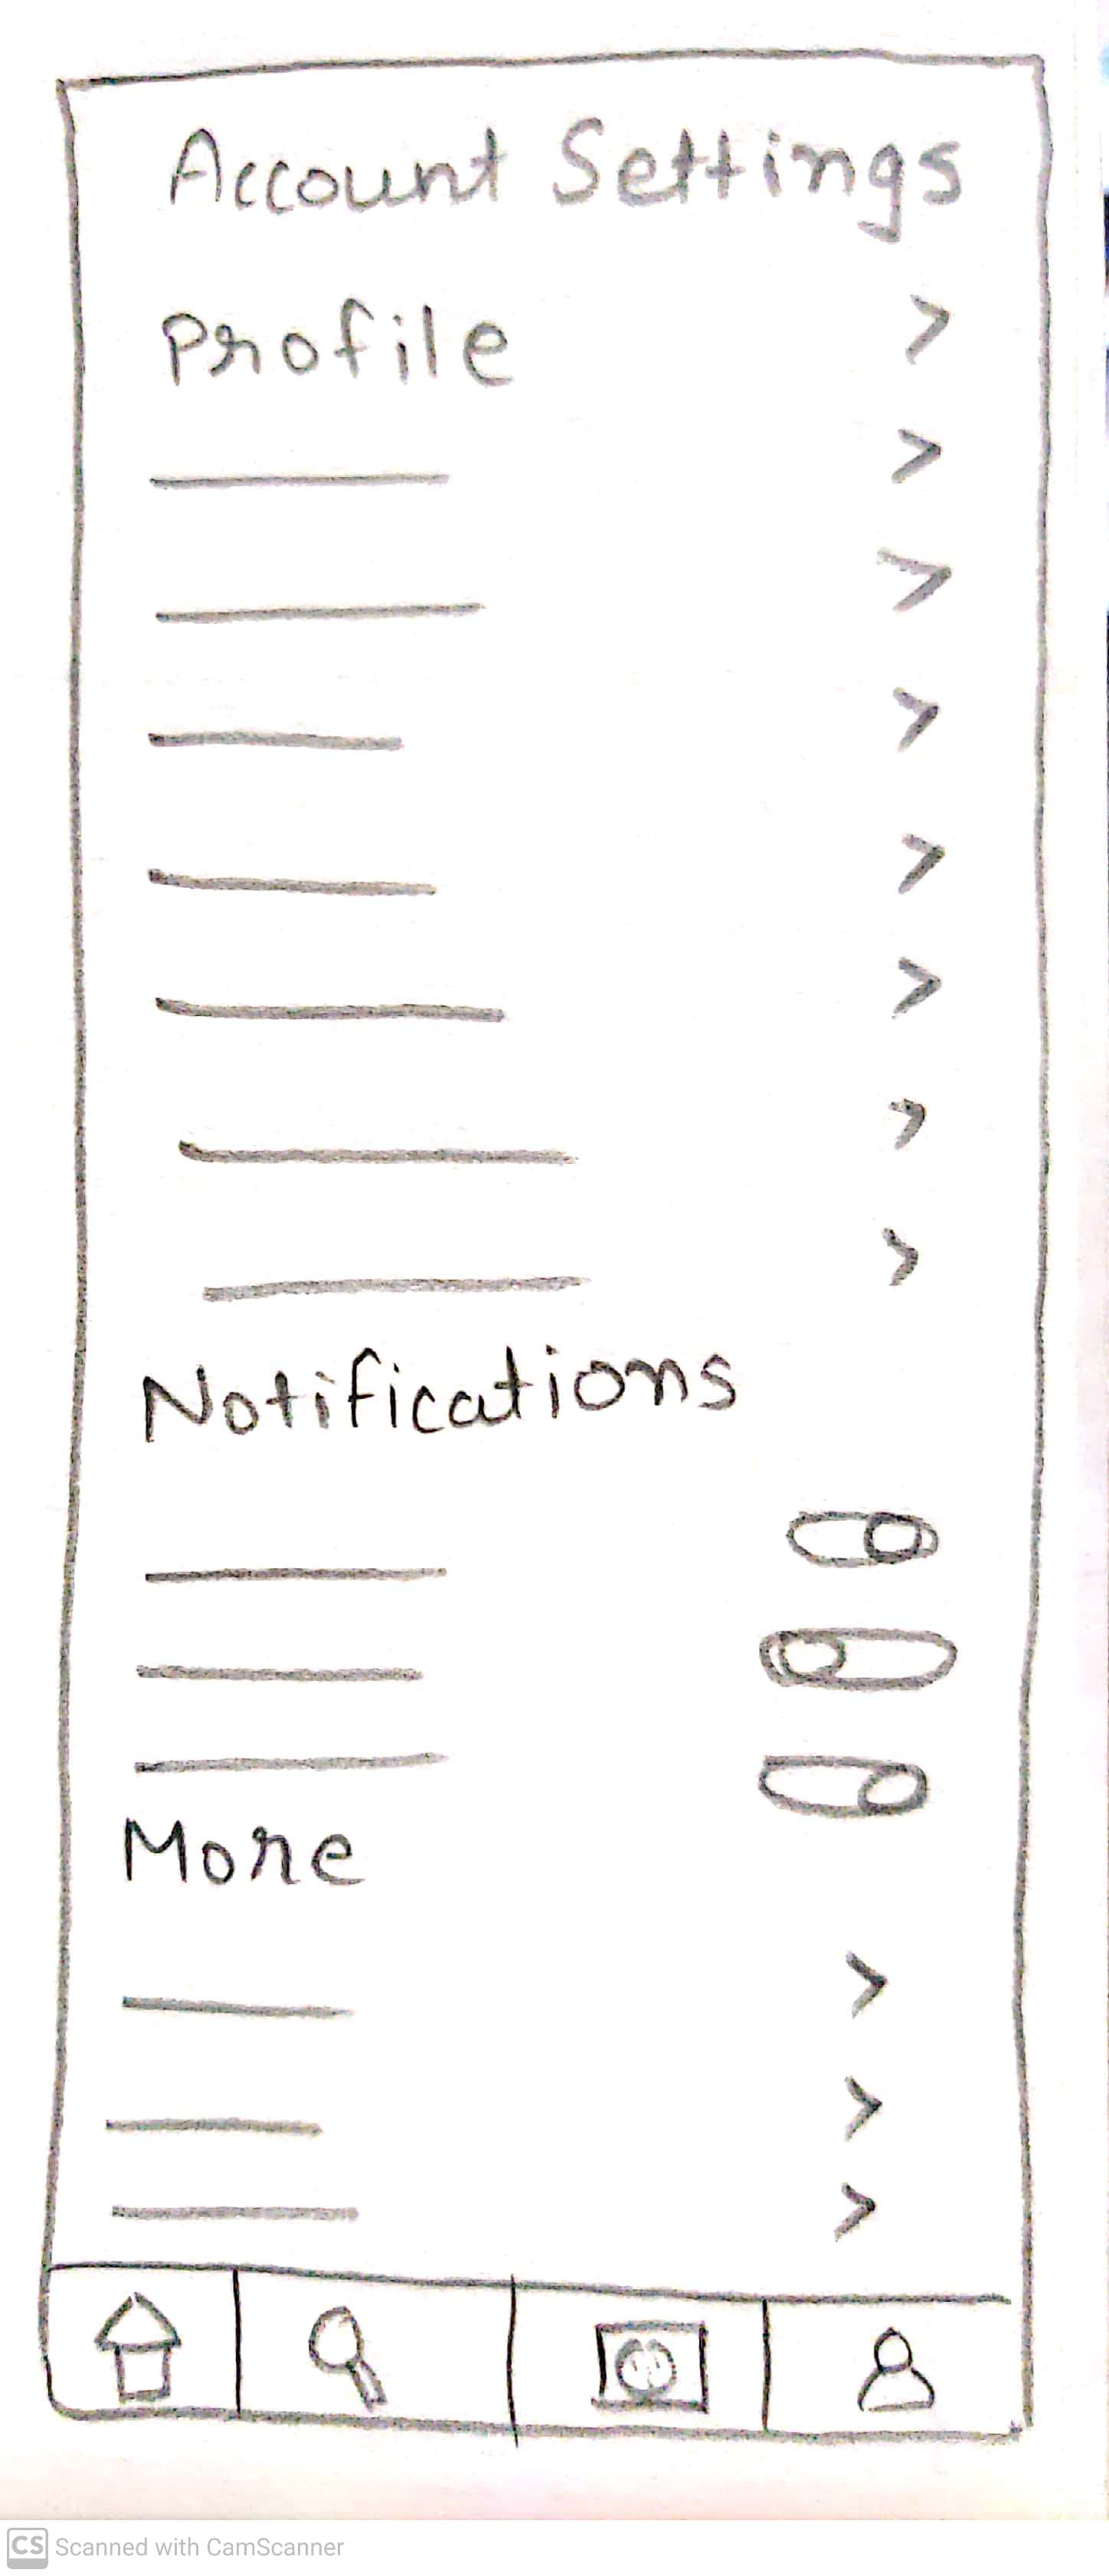 Account Settings
Profile
Notifications
More
CS Scanned with CamScanner